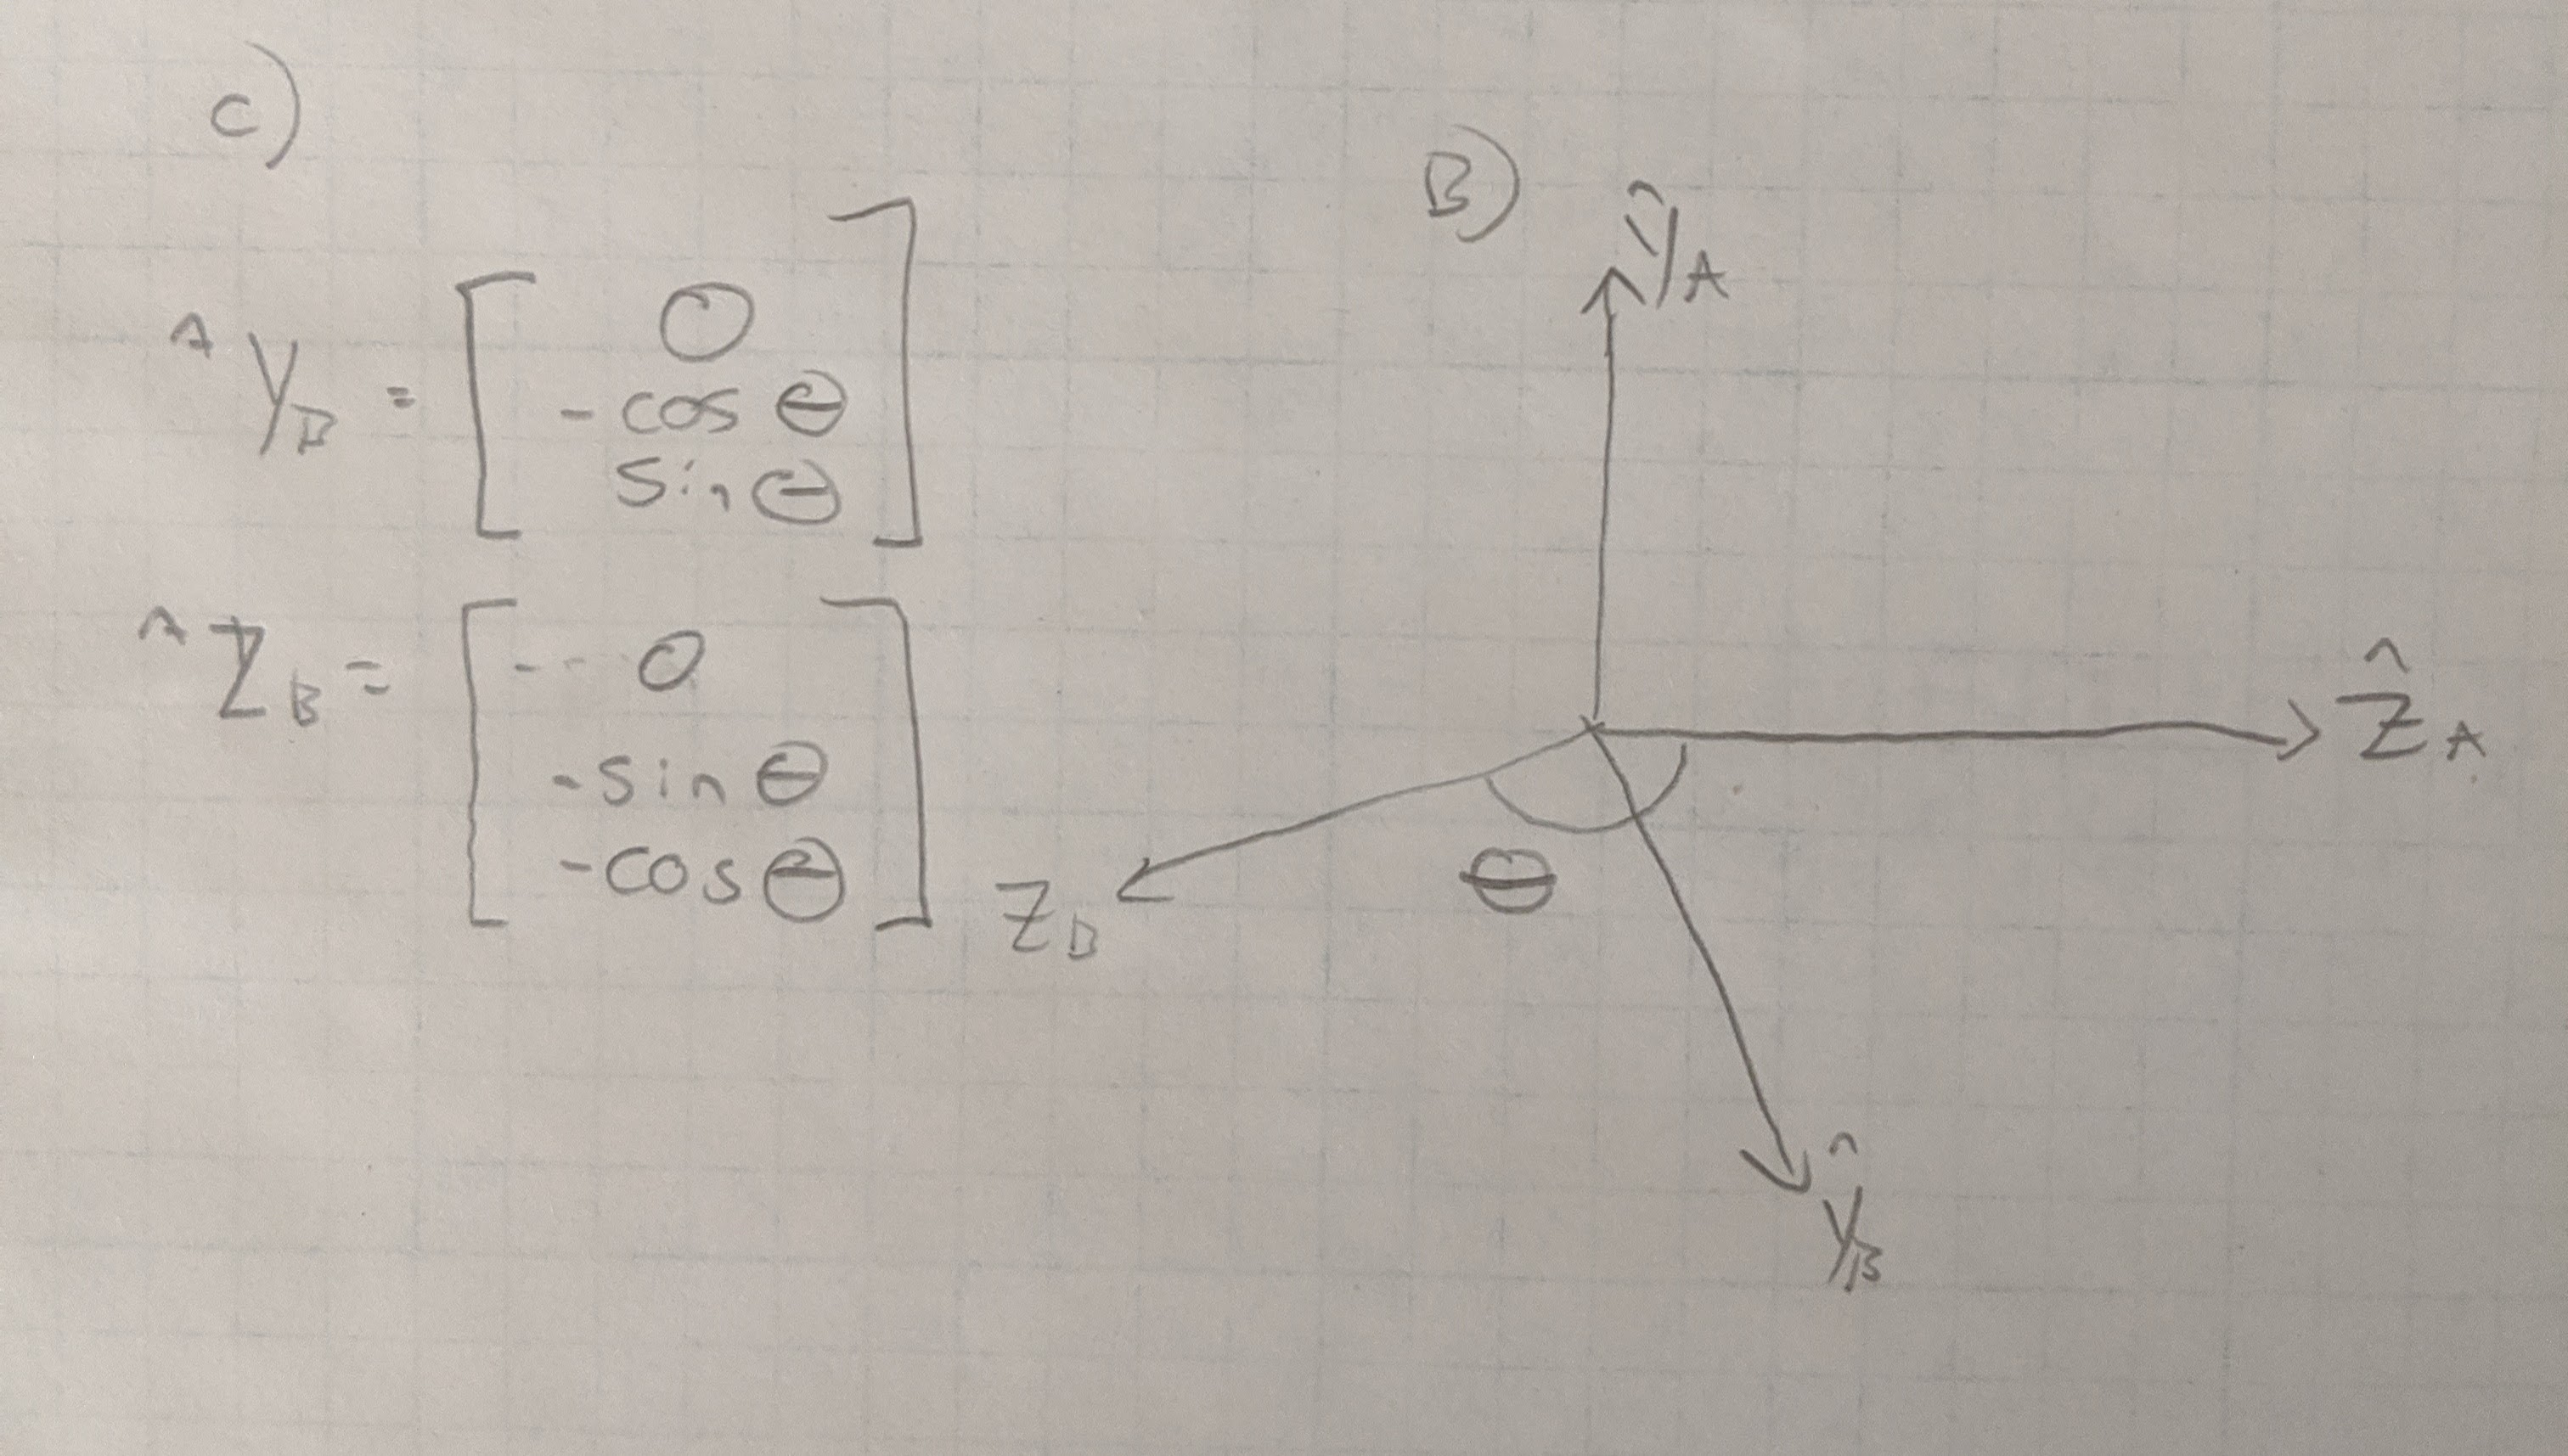 C)
ᴬY_B = [ 0
- cos θ
sin θ ]
ᴬZ_B = [ -- 0
- sin θ
- cos θ ]
B)
Ŷ_A
Ẑ_A
Z_B
θ
Ŷ_B